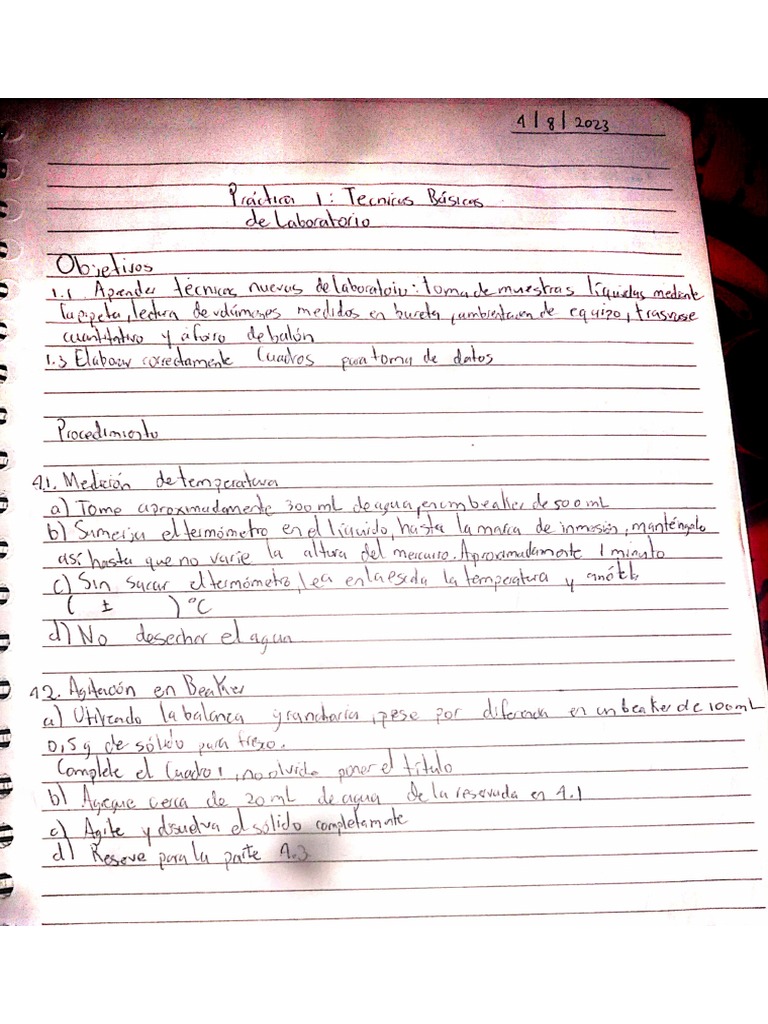 4/8/2023
Práctica 1: Tecnicas Básicas
de Laboratorio
Objetivos
1.1. Aprender técnicas nuevas de laboratorio: toma de muestras líquidas mediante
la pipeta, lectura de volúmenes medidos en bureta, ambientación de equipo, trasvase
cuantitativo y aforo de balón
1.3 Elaborar correctamente Cuadros para toma de datos
Procedimiento
4.1. Medición de temperatura
a) Tome aproximadamente 300 mL de agua, en un beaker de 500 mL
b) Sumerja el termómetro en el líquido, hasta la marca de inmersión, manténgalo
así hasta que no varie la altura del mercurio. Aproximadamente 1 minuto
c) Sin sacar el termómetro, lea en la escala la temperatura y anótela
( ± ) °C
d) No desechar el agua
4.2. Agitación en Beaker
a) Utilizando la balanza granataria, pese por diferencia en un beaker de 100 mL
0,5 g de sólido para
Complete el Cuadro 1, no olvide poner el título
b) Agregue cerca de 20 mL de agua de la reservada en 4.1
c) Agite y disuelva el sólido completamente
d) Reserve para la parte 4.3